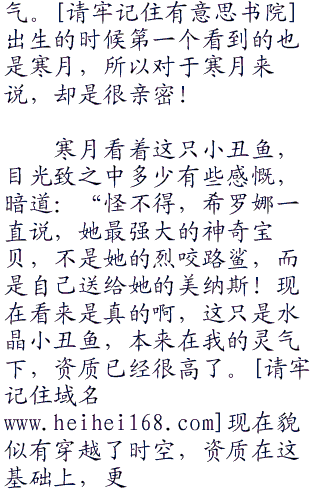 气。[请牢记住有意思书院]
出生的时候第一个看到的也
是寒月，所以对于寒月来
说，却是很亲密！
寒月看着这只小丑鱼，
目光致之中多少有些感慨，
暗道：“怪不得，希罗娜一
直说，她最强大的神奇宝
贝，不是她的烈咬路鲨，而
是自己送给她的美纳斯！现
在看来是真的啊，这只是水
晶小丑鱼，本来在我的灵气
下，资质已经很高了。[请牢
记住域名
www.heihei168.com]现在貌
似有穿越了时空，资质在这
基础上，更